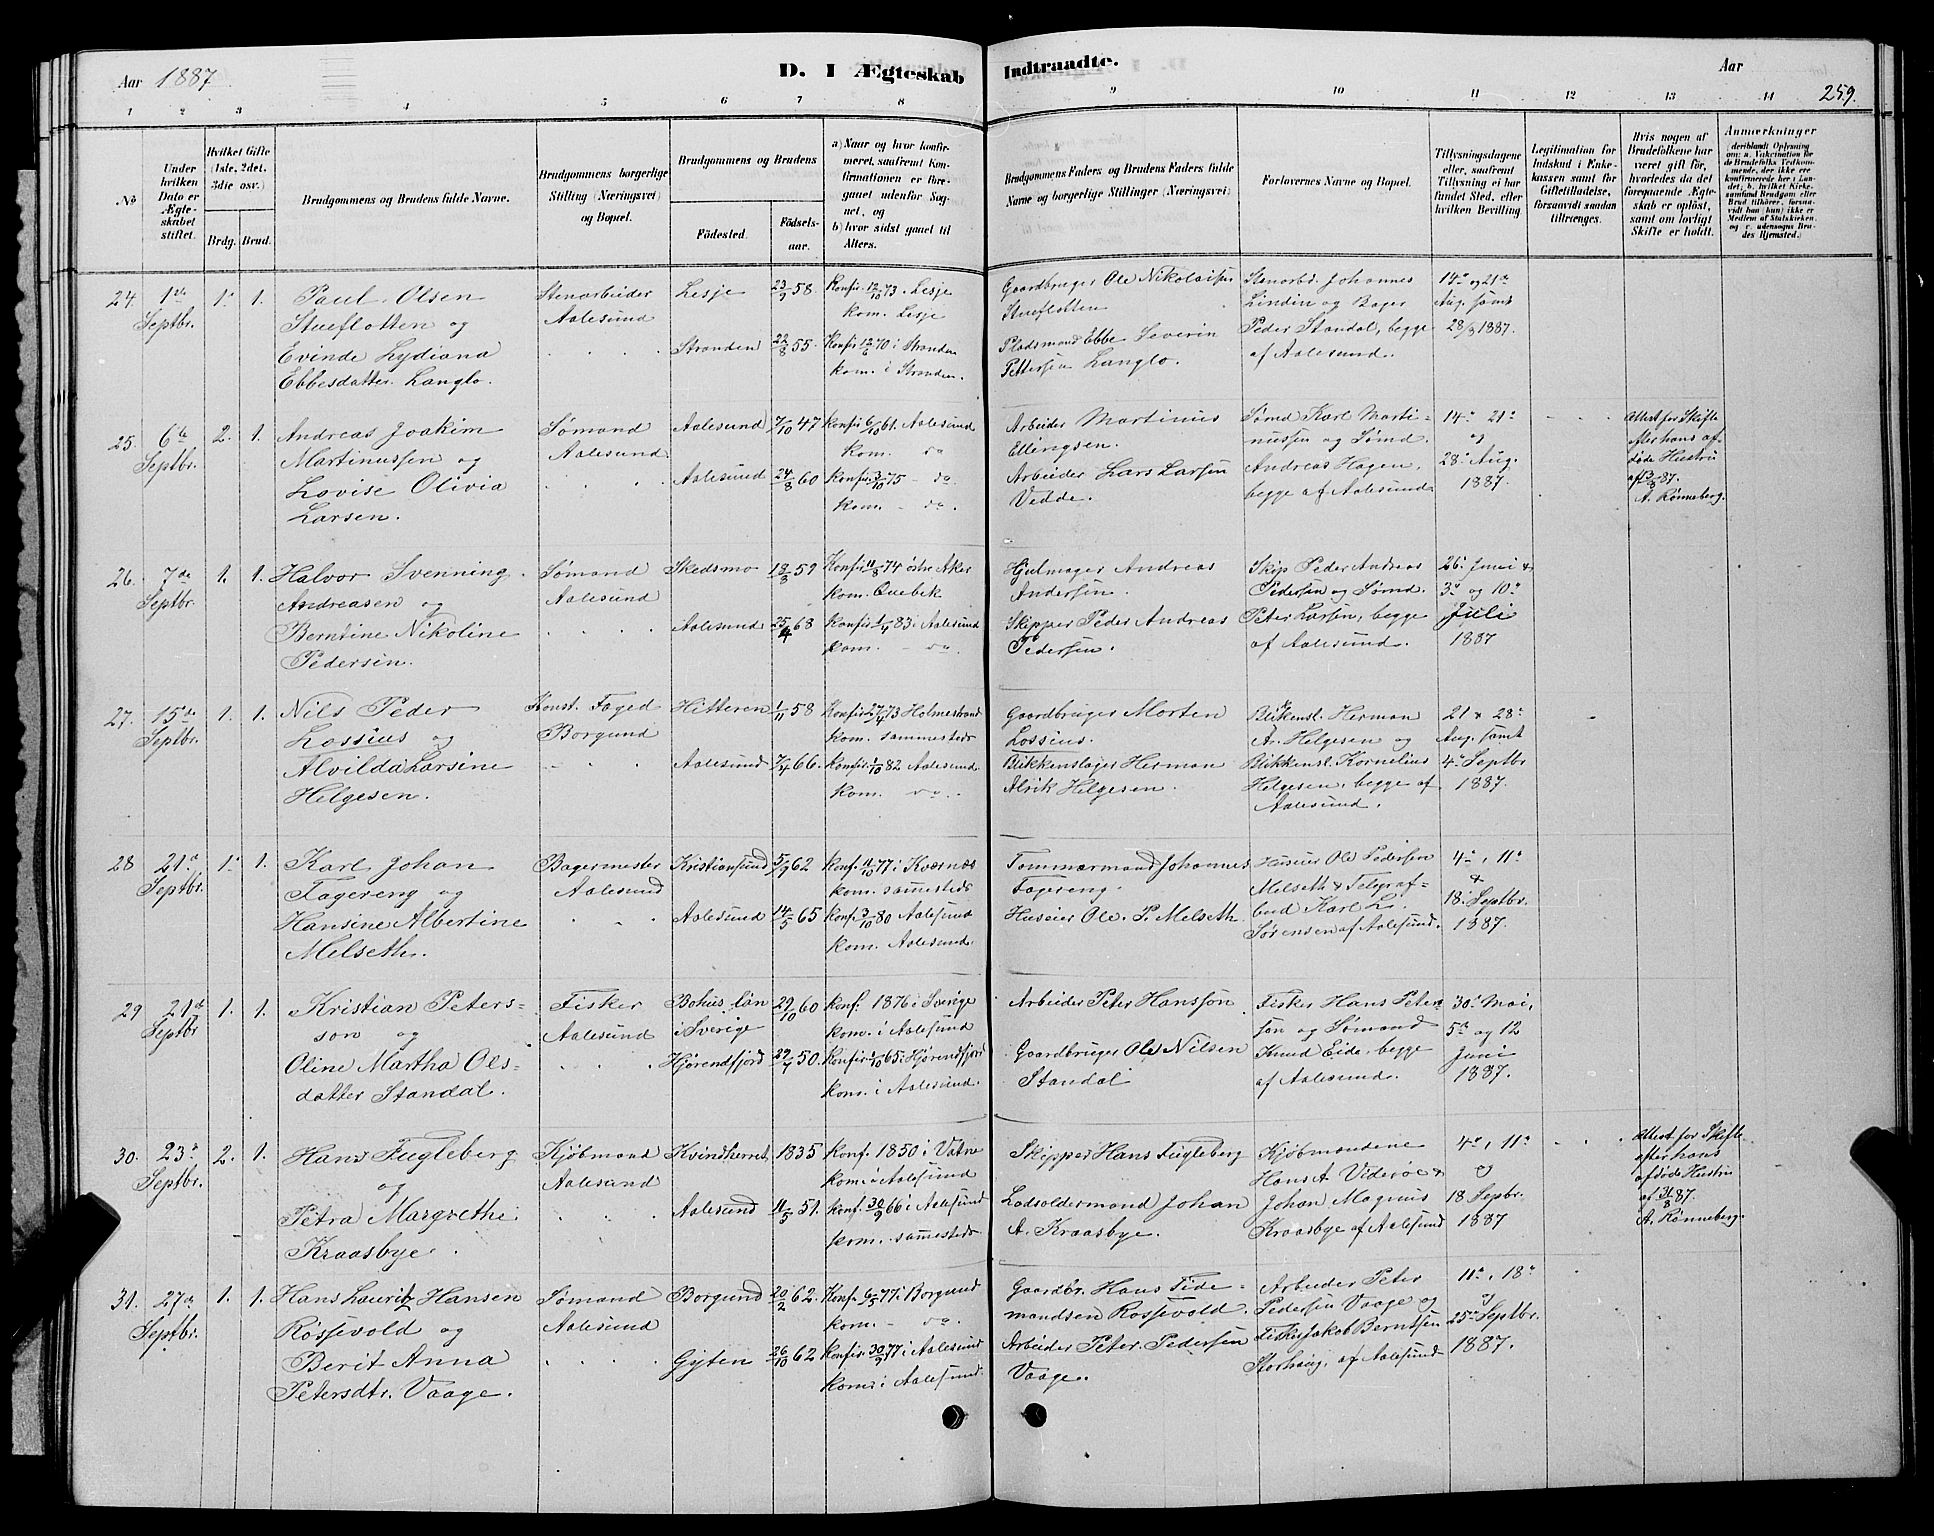 Aar 1887
D. I Ægteskab
Indtraadte.
Aar
259.
1 2 3 4 5 6 7 8 9 10 11 12 13 14
No
Under hvilken Dato er Ægteskabet stiftet.
Hvilket Gifte (1ste, 2det, 3die osv.)
Brdg. Brud.
Brudgommens og Brudens fulde Navne.
Brudgommens borgerlige Stilling (Næringsvei) og Bopæl.
Brudgommens og Brudens
Fødested.
Fødselsaar.
a) Naar og hvor konfirmeret, saafremt Konfirmationen er foregaaet udenfor Sognet, og
b) hvor sidst gaaet til Alters.
Brudgommens Faders og Brudens Faders fulde Navne og borgerlige Stillinger (Næringsvei).
Forlovernes Navne og Bopæl.
Tillysningsdagene eller, saafremt Tillysning ei har fundet Sted, efter hvilken Bevilling
Legitimation for Indskud i Enkekassen samt for Giftetilladelse, forsaavidt saadan tiltrænges.
Hvis nogen af Brudefolkene har været gift før, hvorledes da det foregaaende Ægteskab er opløst, samt om lovligt Skifte er holdt.
Anmerkninger
(deriblandt Oplysning om: a. Vakcination for de Brudefolks Vedkommende, der ikke ere konfirmerede her i Landet, b. hvilket Kirkesamfund Brudgom eller Brud tilhører, forsaavidt han (hun) ikke er Medlem af Statskirken, og c. udensogns Brudes Hjemsted.)
24. 1ste Septbr. 1. 1.
Paul Olsen
Stueflotten og
Evinde Lydiana
Ebbesdatter Langlo.
Stenarbeider
Aalesund
Lesje 23/9 58
Stranden 22/8 55.
Konfir. 12/10 73. Lesje
kom. Lesje
Konfir 12/6 70 i Stranden
kom. i Stranden.
Gaardbruger Ole Nikolaisen
Stueflotten
Pladsmand Ebbe Severin
Pettersen Langlo.
Stenarbd. Johannes
Lindin og Bager
Peder Standal, begge
af Aalesund.
14de og 21de
Aug. samt
28/8 1887.
25. 6te Septbr. 2. 1.
Andreas Joakim
Martinussen og
Lovise Olivia
Larsen.
Sømand
Aalesund
Aalesund 7/10 47
Aalesund 24/8 60
Konfir 6/10 61. Aalesund
kom. do
konfir. 3/10 75 - do.
kom. - do.
Arbeider Martinus
Ellingsen.
Arbeider Lars Larsen
Vedde.
Sømd Karl Marti-
nussen og Sømd.
Andreas Hagen,
begge af Aalesund.
14de 21de
og
28de Aug.
1887.
Attest for Skifte
efter hans af-
døde Hustru
87.
A. Rønneberg.
26. 7de Septbr. 1. 1.
Halvor Svenning
Andreasen og
Berntine Nikoline
Pedersen.
Sømand
Aalesund
Skedsmo 18/3 59
Aalesund 25/4 68
Konfir 11/8 74 østre Aker
kom. Quebek
Konfir 1/4 83 i Aalesund
kom. - do.
Hjulmager Andreas
Andersen.
Skipper Peder Andreas
Pedersen.
Skip Peder Andreas
Pedersen og Sømd.
Peter Larsen, begge
af Aalesund.
26de Juni &
3de og 10de
Juli
1887
27. 15de Septbr. 1. 1.
Nils Peder
Lossius og
Alvilda Larsine
Helgesen.
Konst. Foged
Borgund
Hitteren 1/11 58
Aalesund 7/4 66.
Konfir 27/4 73 Holmestrand
kom. sammesteds
Konfir. 1/10 82 Aalesund
kom. do.
Gaardbruger Morten
Lossius.
Blikkenslager Herman
Alrik Helgesen.
Blikkensl. Herman
A. Helgesen og
Blikkensl. Kornelius
Helgesen, begge af
Aalesund.
21 & 28de
Aug. samt
4de Septbr
1887.
28 21de Septbr. 1. 1.
Karl Johan
Fagereng og
Hansine Albertine
Melseth.
Bagermester
Aalesund
Kristiansund 5/9 62
Aalesund 14/5 65
konf. 11/10 77 i Kværnæs
kom. samesteds
konf. 3/10 80 Aalesund
kom. Aalesund.
Tømmermand Johannes
Fagereng.
Huseier Ole P. Melseth
Huseier Ole Pedersen
Melseth & Telegraf-
bud Karl L.
Sørensen af Aalesund.
4de, 11te
&
18. Septbr.
1887.
29 21de Septbr 1. 1.
Kristian Peters-
son og
Oline Martha Ols-
datter Standal.
Fisker
Aalesund
Bohus län
i Sverige
29/10 60
Hjørendfjord 29/4 50.
konf. 1876 i Sverige
kom. i Aalesund
Konfir. 1/10 65 Hjørendfjord
kom. i Aalesund.
Arbeider Peter Hansson
Gaardbruger Ole Nilsen
Standal
Fisker Hans Peter-
son og Sømand
Knud Eide, begge
af Aalesund.
30de Mai,
5te og 12
Juni
1887.
30. 23de Septbr. 2. 1.
Hans Fugleberg
og
Petra Margrethe
Kraasbye.
Kjøbmand
Aalesund
Kvindherret 1835
Aalesund 11/5 51.
konf. 1850 i Vatne
kom i Aalesund
konf. 30/9 66 i Aalesund
kom. samesteds.
Skipper Hans Fugleberg
Ladsoldermand Johan
A. Kraasbye.
Kjøbmændene
Hans A Viderøe &
Johan Magnus
Kraasbye af Aalesund
4de, 11te
og
18 Septbr.
1887
Attest for Skifte
efter hans
afdøde Hustru
af 31/8 87.
A. Rønneberg.
31. 27de Septbr. 1. 1.
Hans Lauritz Hansen
Rossevold og
Berit Anna
Petersdtr. Vaage.
Sømand
Aalesund
Borgund 20/2 62.
Gjyten 26/10 62
Konf. 6/5 77 i Borgund
kom. - do.
Konfir. 30/9 77 i Aalesund
kom. i Aalesund.
Gaardbr. Hans Tide-
mandsen Rossevold.
Arbeider Peter Pedersen
Vaage.
Arbeider Peter
Pedersen Vaage og
Fisker Jakob Berntsen
Storhaug, af Aalesund
11te, 18de
og
25de Septbr.
1887.